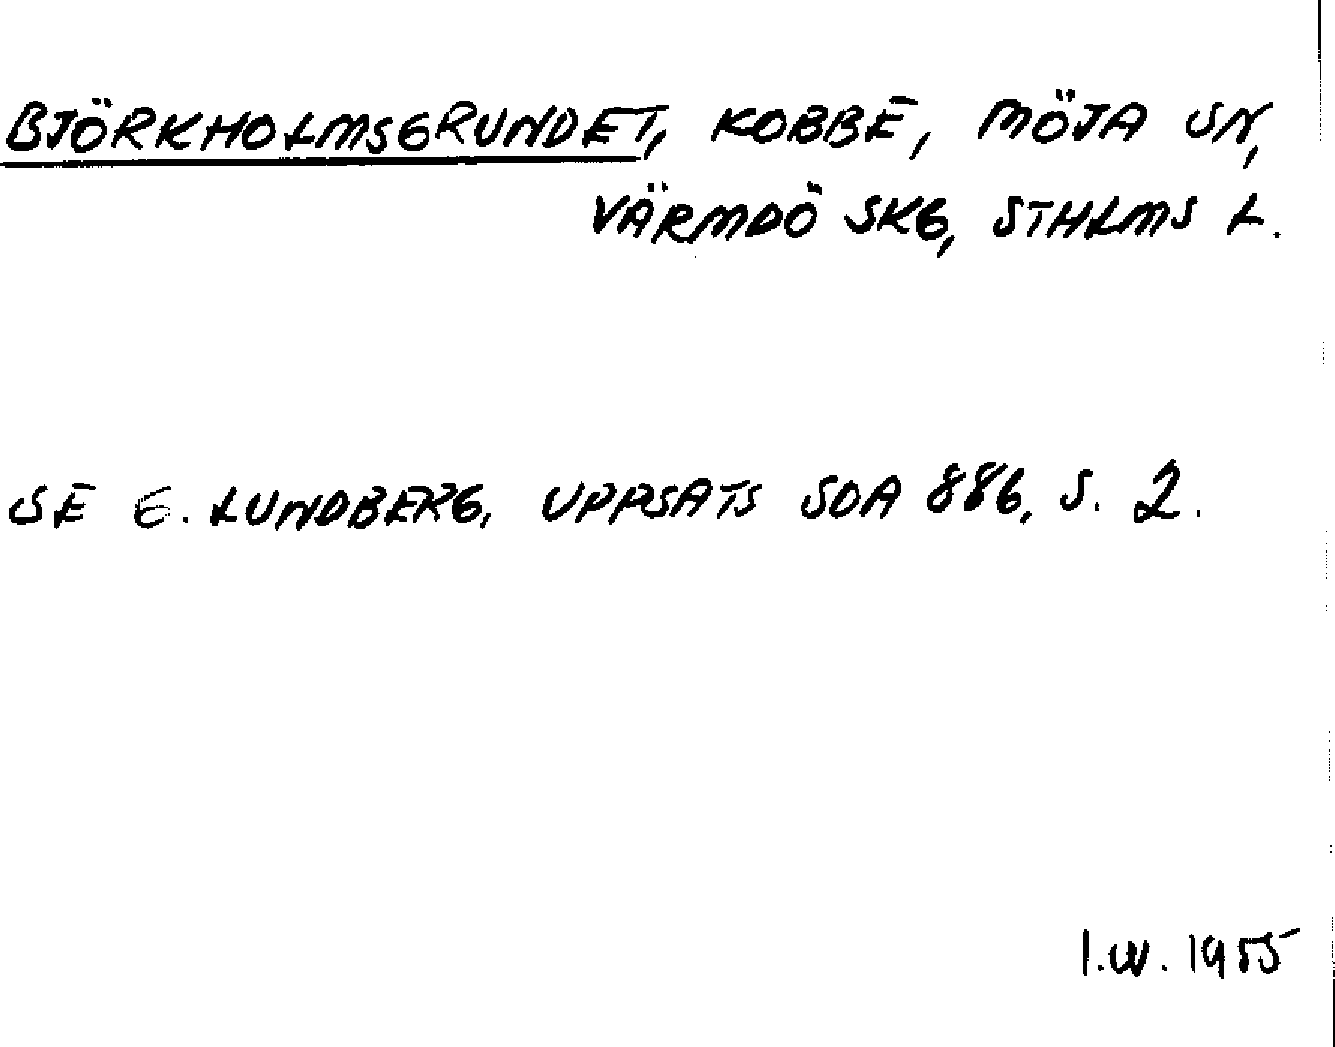 BJÖRKHOLMSGRUNDET, KOBBE, MÖJA SN,
VÄRMDÖ SKG, STHLMS L.
SE G. LUNDBERG, UPPSATS SOA 886, S. 2.
I.W. 1955